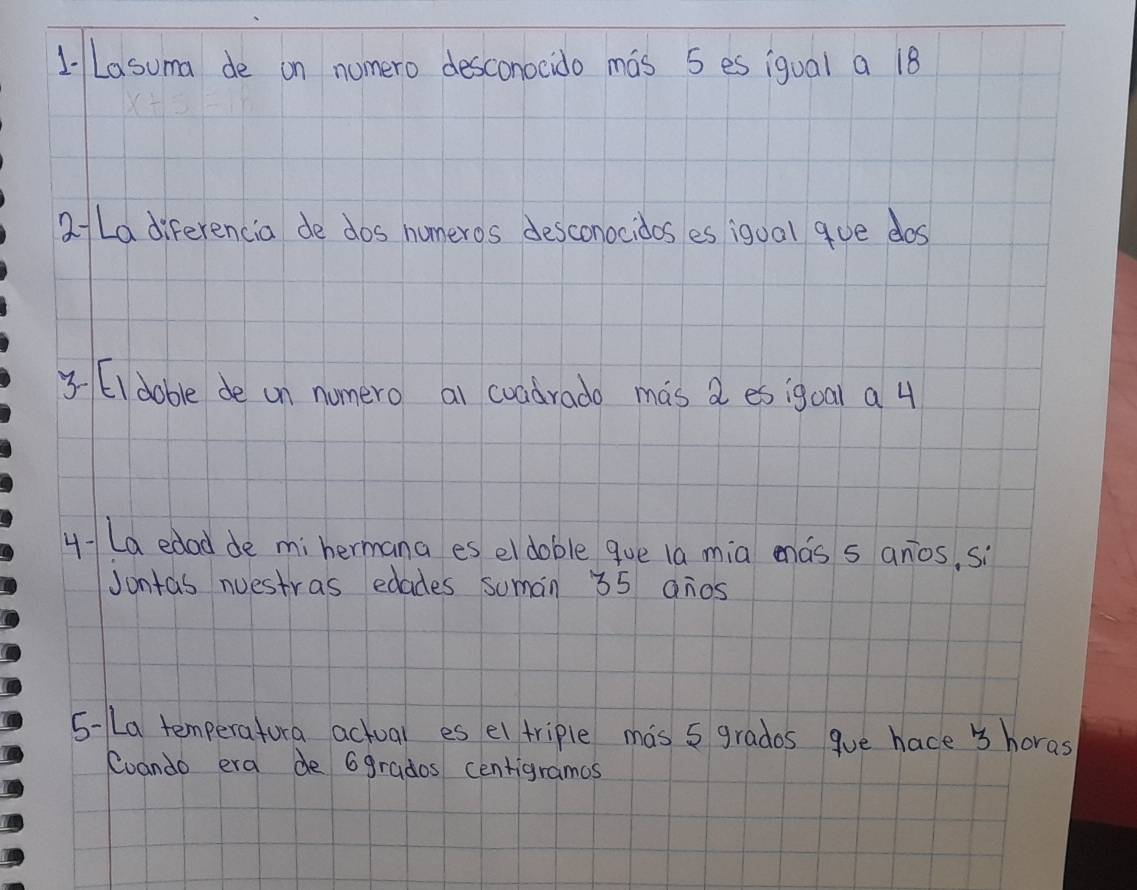 1- La suma de un numero desconocido más 5 es igual a 18
2- La diferencia de dos numeros desconocidos es igual que dos
3- El doble de un numero al cuadrado más 2 es igual a 4
4- La edad de mi hermana es el doble que la mia más 5 años, si
juntas nuestras edades sumán 35 años
5- La temperatura actual es el triple más 5 grados que hace 3 horas
Cuando era de 6 grados centigramos